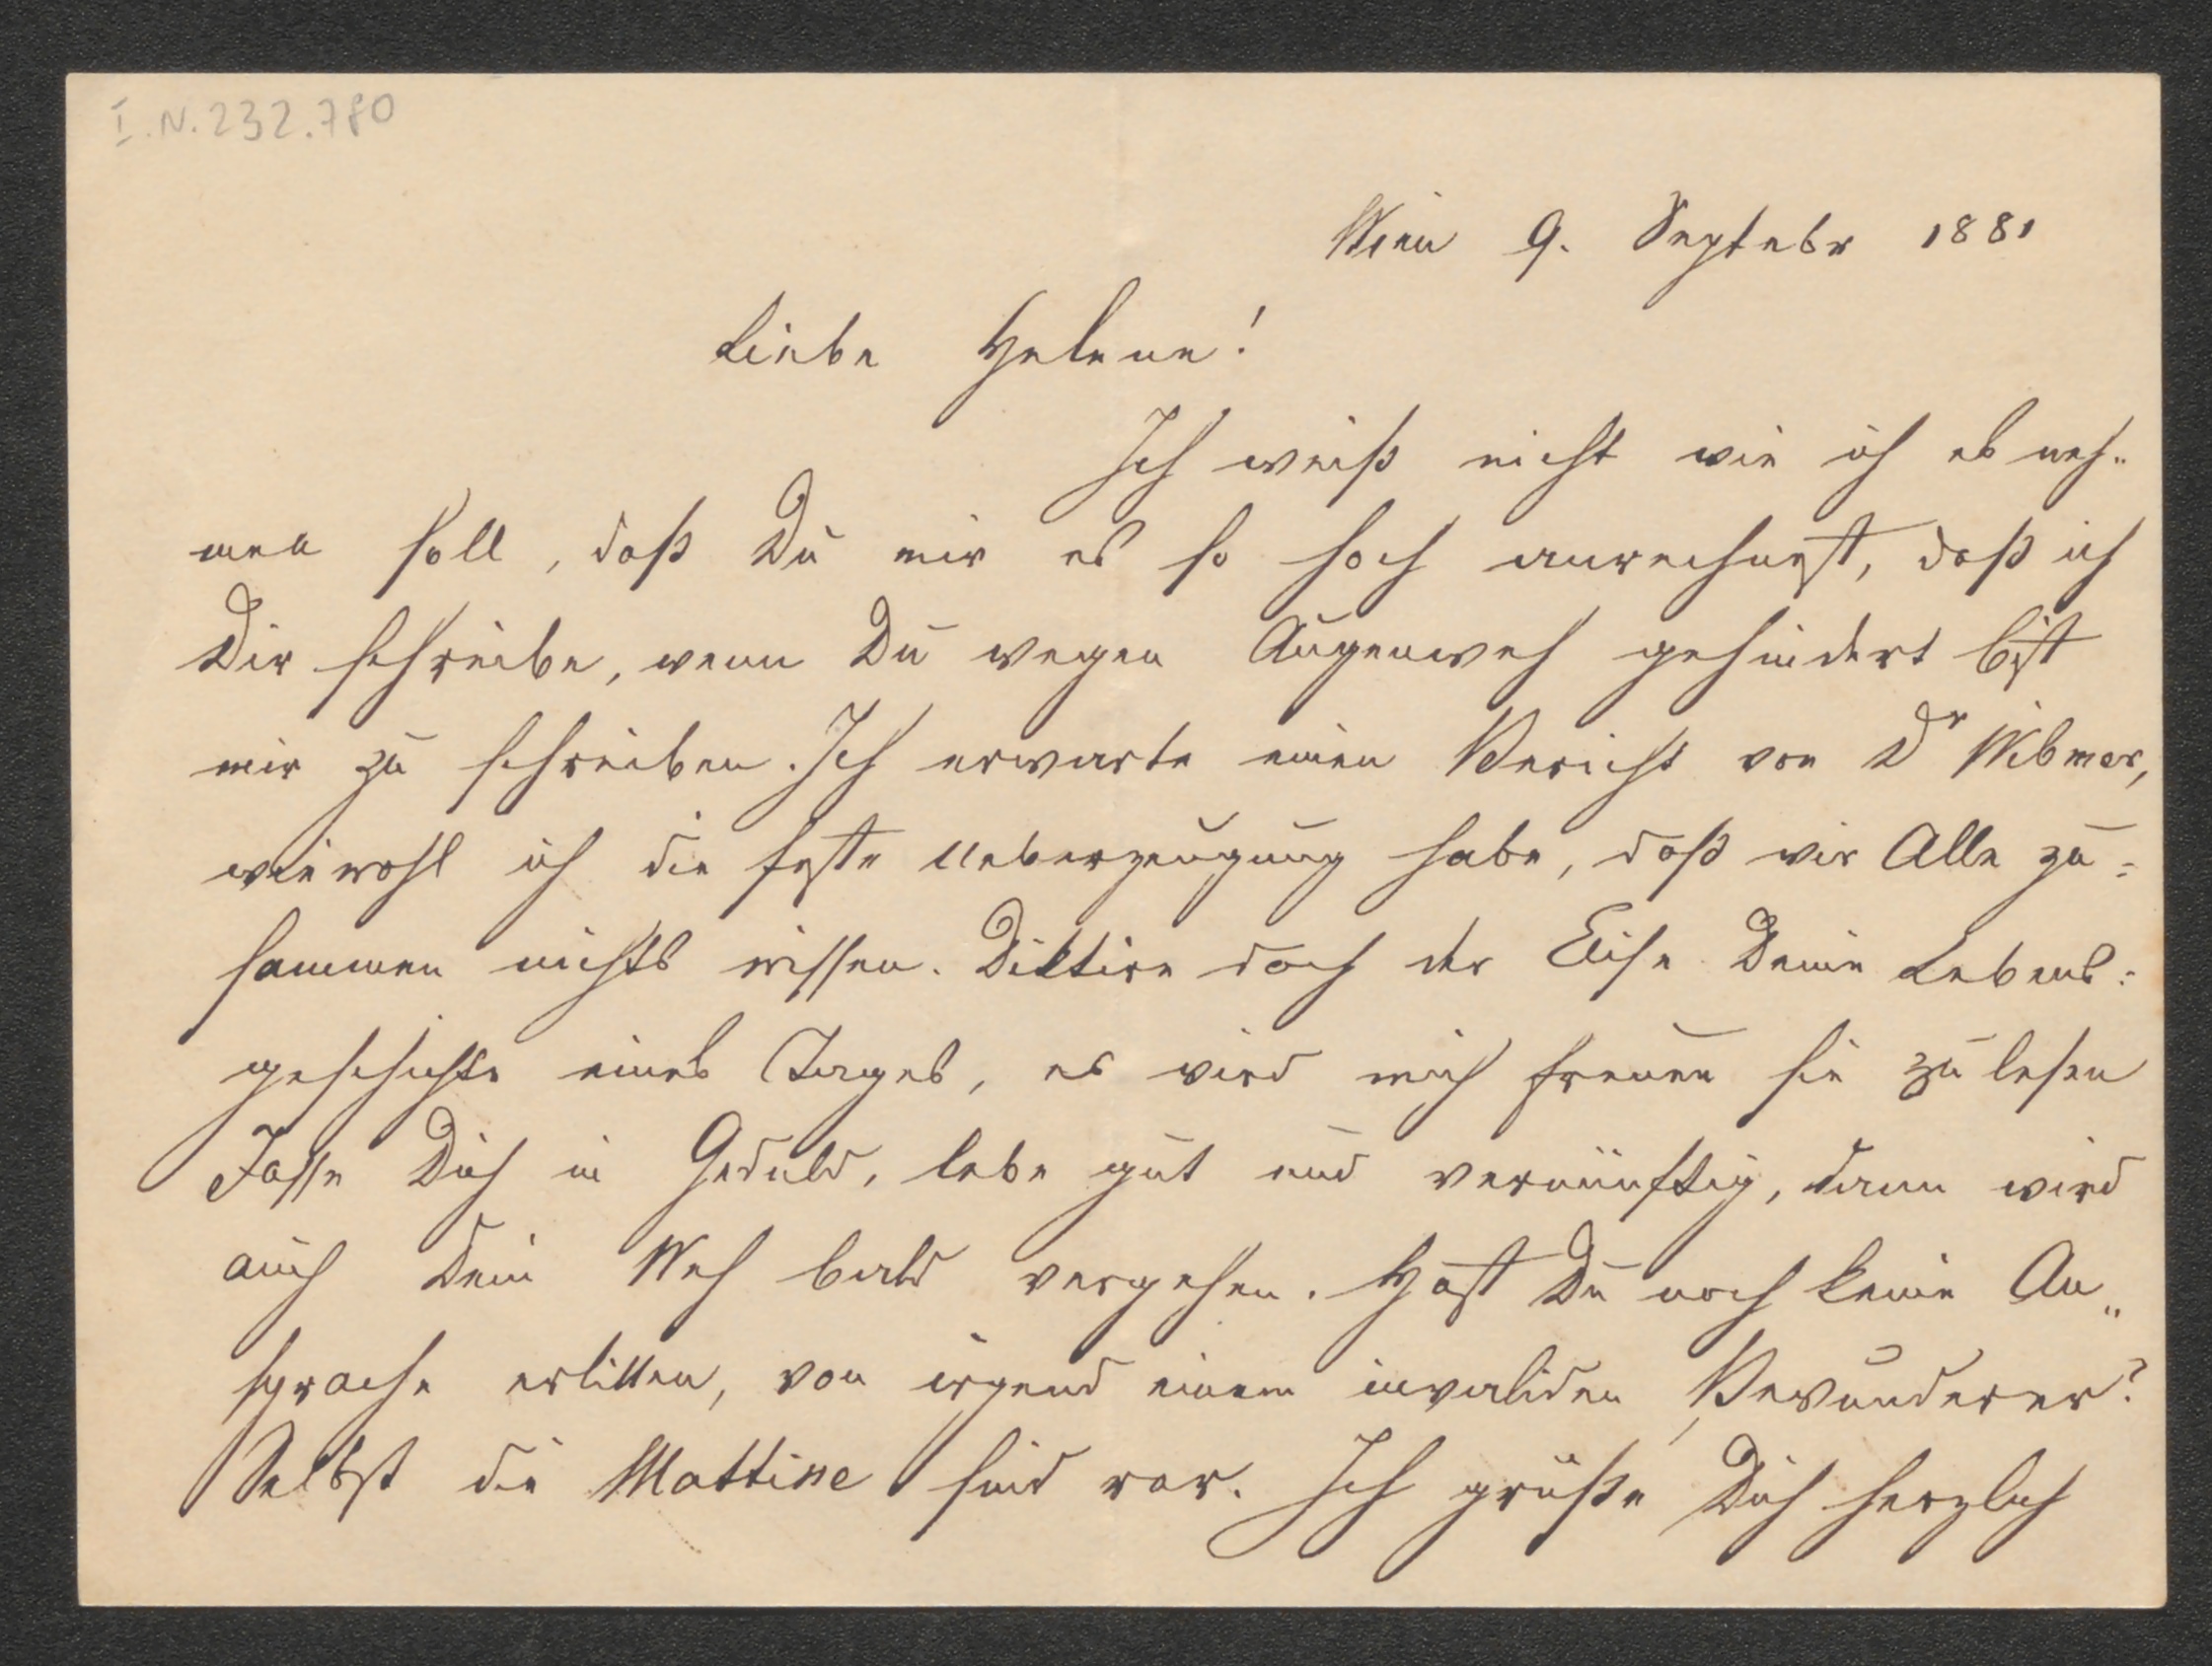 I.N. 232.780
Wien 9. Septebr 1881
Liebe Helene!
Ich weiß nicht wie ich es neh„
men soll, daß Du mir es so hoch anrechnest, daß ich
Dir schreibe, wenn Du wegen Augenweh gehindert bist
mir zu schreiben. Ich erwarte einen Bericht von Dr Wibmer,
wiewohl ich die feste Ueberzeugung habe, daß wir Alle zu=
sammen nichts wissen. Diktire doch der Elise Deine Lebens=
geschichte eines Tages, es wird mich freuen sie zu lesen
Fasse Dich in Geduld, lebe gut und vernünftig, dann wird
auch Dein Weh bald vergehen. Hast Du noch keine An„
sprache erlitten, von irgend einem invaliden Bewunderer?
Selbst die sind rar. Ich grüße Dich herzlich